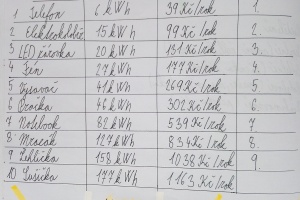 1 Telefon 6 kWh 39 Kč/rok 1.
2 15 kWh 99 Kč/rok 2.
3 LED žárovka 20 kWh 131 Kč/rok 3.
4 Fén 27 kWh 177 Kč/rok 4.
5 Vysavač 41 kWh 269 Kč/rok 5.
6 Pračka 46 kWh 302 Kč/rok 6.
7 Notebook 82 kWh 539 Kč/rok 7.
8 Mrazák 127 kWh 834 Kč/rok 8.
9 Žehlička 158 kWh 1038 Kč/rok 9.
10 Sušička 177 kWh 1163 Kč/rok